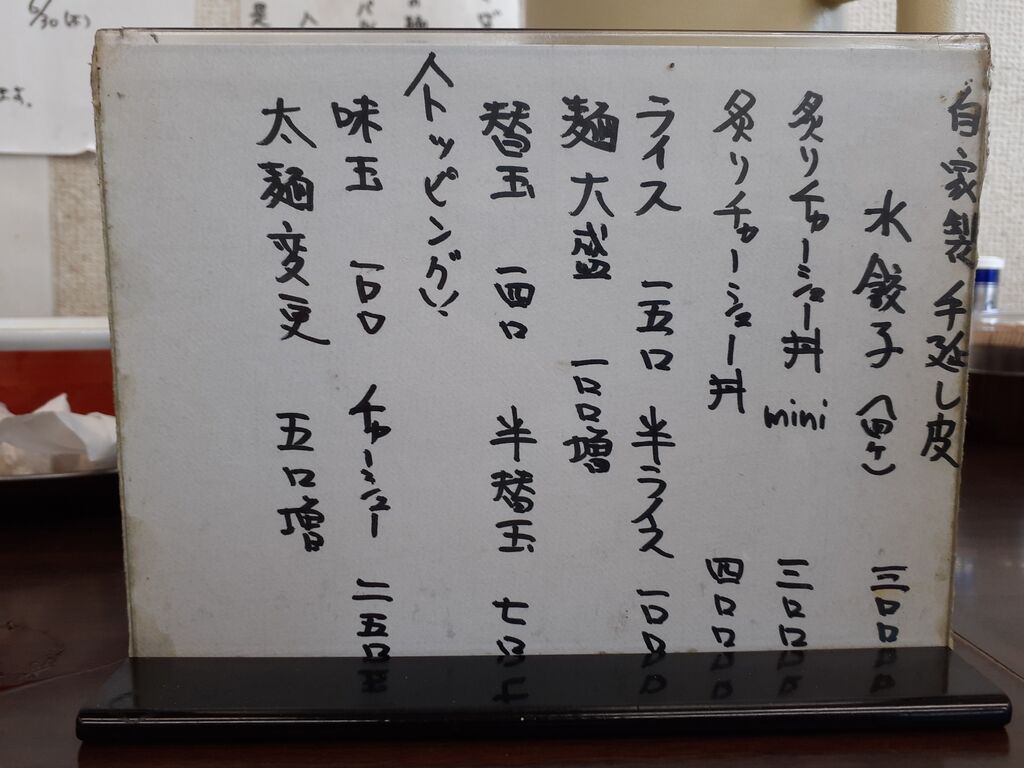 自家製手延し皮
水餃子(四ケ) 三〇〇
炙りチャーシュー丼 mini 三〇〇
炙りチャーシュー丼 四〇〇
ライス 一五〇 半ライス 一〇〇
麺大盛 一〇〇増
替玉 一四〇 半替玉 七〇
〈トッピング〉
味玉 一〇〇 チャーシュー 二五〇
太麺変更 五〇増
6/30(木)
ます。